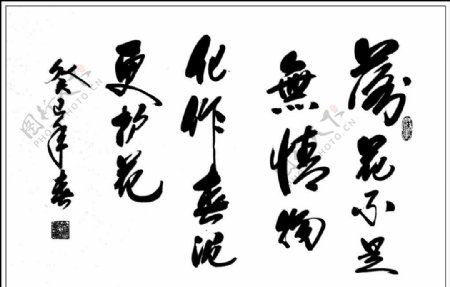 落花不是
無情物
化作春泥
更护花
癸巳年春